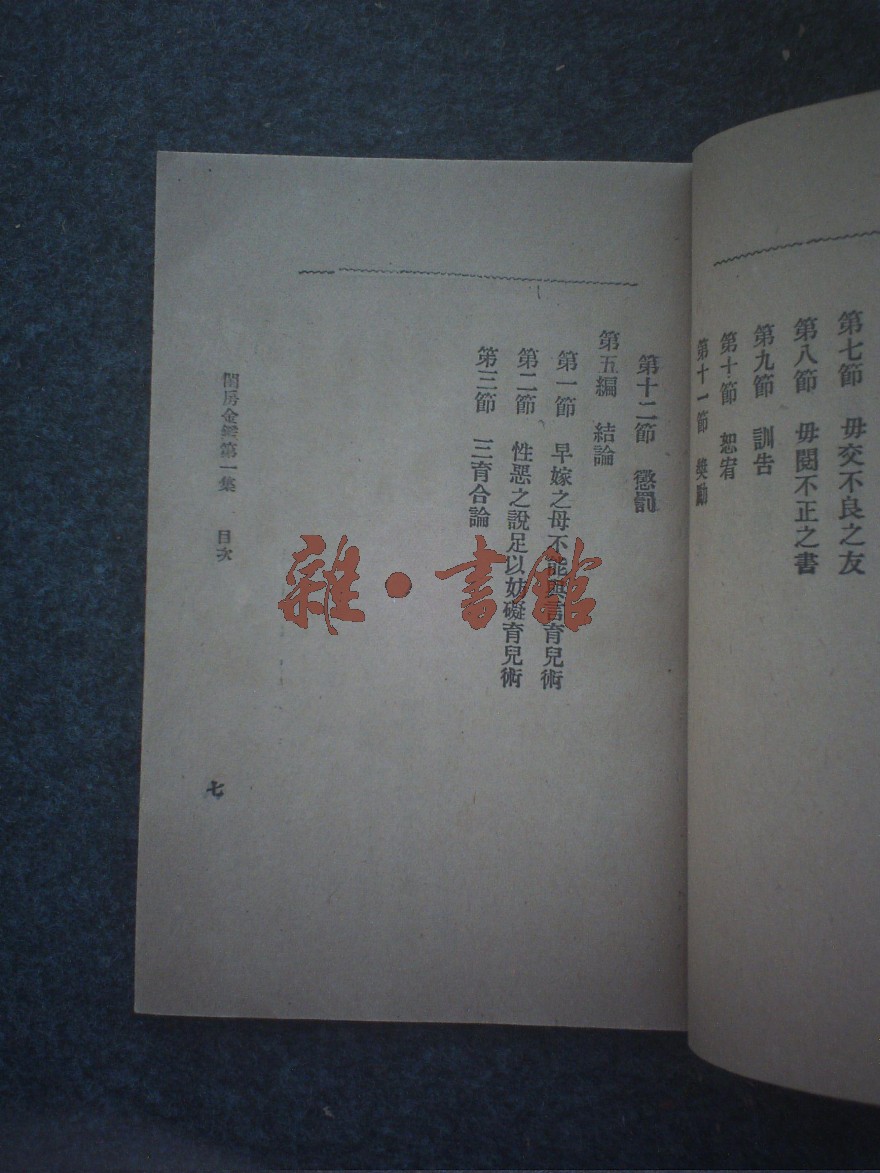 第七節 毋交不良之友
第八節 毋閱不正之書
第九節 訓告
第十節 恕宥
第十一節 獎勵
第十二節 懲罰
第五編 結論
第一節 早嫁之母不能與言育兒術
第二節 性惡之說足以妨礙育兒術
第三節 三育合論
閨房金鑑第一集 目次
七
雜·書館